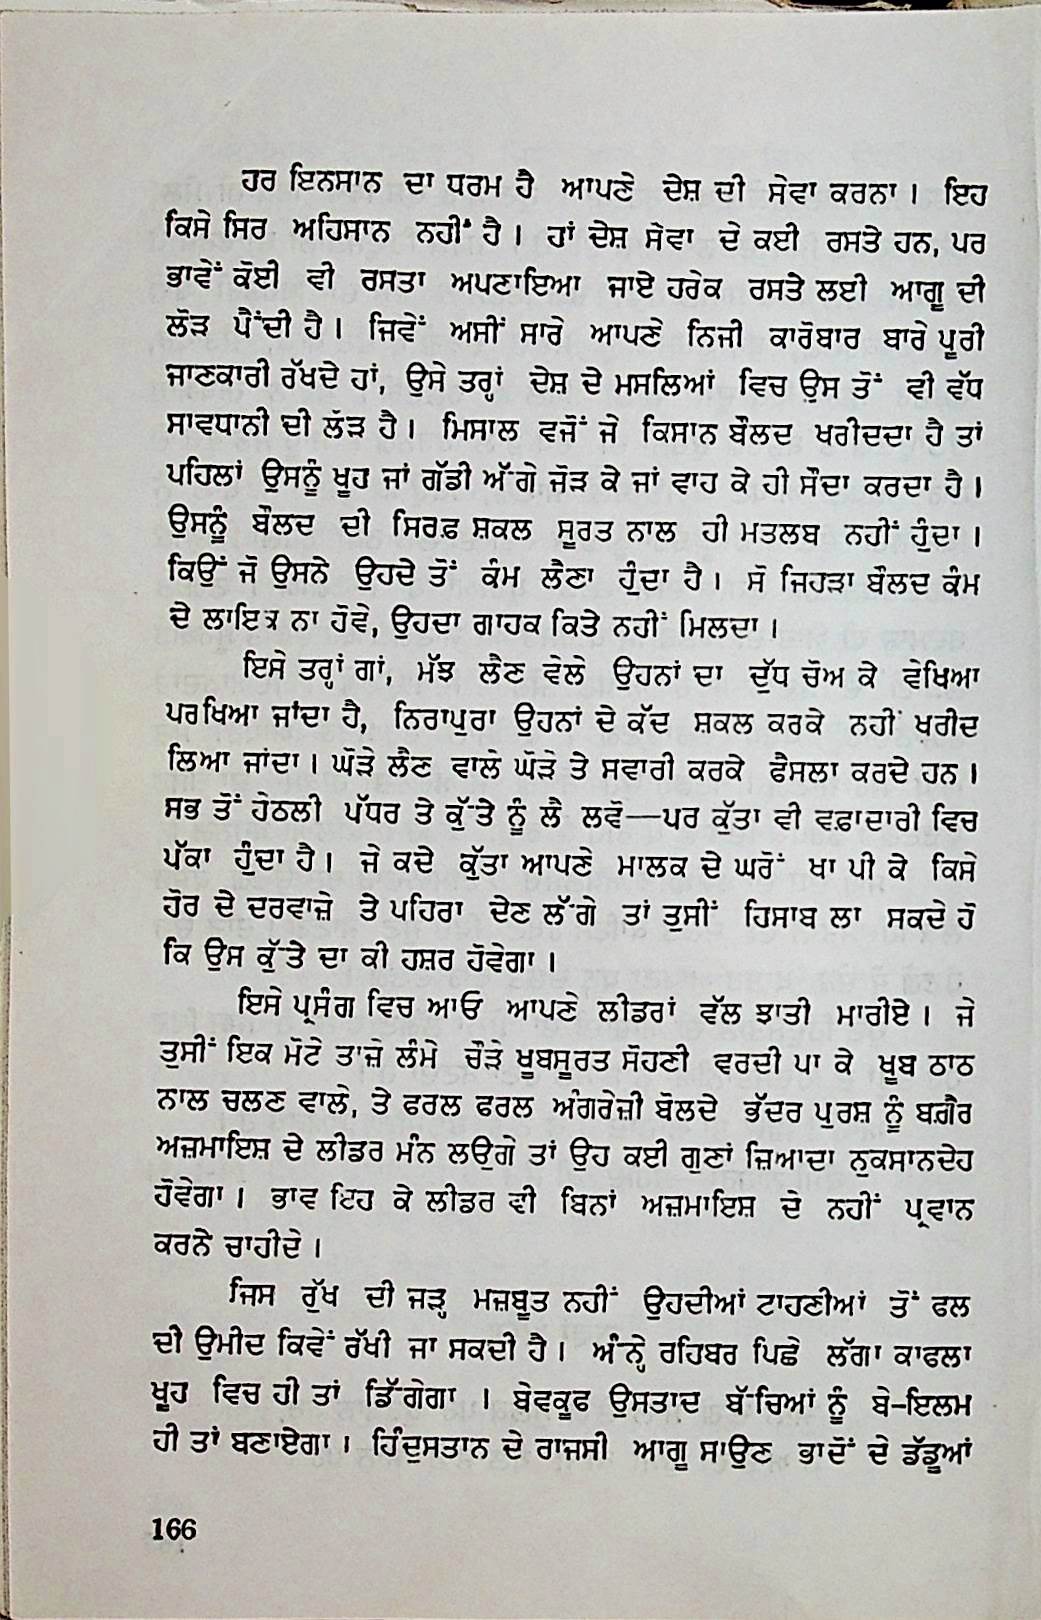 ਹਰ ਇਨਸਾਨ ਦਾ ਧਰਮ ਹੈ ਆਪਣੇ ਦੇਸ਼ ਦੀ ਸੇਵਾ ਕਰਨਾ। ਇਹ
ਕਿਸੇ ਸਿਰ ਅਹਿਸਾਨ ਨਹੀਂ ਹੈ। ਹਾਂ ਦੇਸ਼ ਸੇਵਾ ਦੇ ਕਈ ਰਸਤੇ ਹਨ, ਪਰ
ਭਾਵੇਂ ਕੋਈ ਵੀ ਰਸਤਾ ਅਪਣਾਇਆ ਜਾਏ ਹਰੇਕ ਰਸਤੇ ਲਈ ਆਗੂ ਦੀ
ਲੋੜ ਪੈਂਦੀ ਹੈ। ਜਿਵੇਂ ਅਸੀਂ ਸਾਰੇ ਆਪਣੇ ਨਿਜੀ ਕਾਰੋਬਾਰ ਬਾਰੇ ਪੂਰੀ
ਜਾਣਕਾਰੀ ਰੱਖਦੇ ਹਾਂ, ਉਸੇ ਤਰ੍ਹਾਂ ਦੇਸ਼ ਦੇ ਮਸਲਿਆਂ ਵਿਚ ਉਸ ਤੋਂ ਵੀ ਵੱਧ
ਸਾਵਧਾਨੀ ਦੀ ਲੋੜ ਹੈ। ਮਿਸਾਲ ਵਜੋਂ ਜੇ ਕਿਸਾਨ ਬੌਲਦ ਖਰੀਦਦਾ ਹੈ ਤਾਂ
ਪਹਿਲਾਂ ਉਸਨੂੰ ਖੂਹ ਜਾਂ ਗੱਡੀ ਅੱਗੇ ਜੋੜ ਕੇ ਜਾਂ ਵਾਹ ਕੇ ਹੀ ਸੌਦਾ ਕਰਦਾ ਹੈ।
ਉਸਨੂੰ ਬੌਲਦ ਦੀ ਸਿਰਫ਼ ਸ਼ਕਲ ਸੂਰਤ ਨਾਲ ਹੀ ਮਤਲਬ ਨਹੀਂ ਹੁੰਦਾ।
ਕਿਉਂ ਜੋ ਉਸਨੇ ਉਹਦੇ ਤੋਂ ਕੰਮ ਲੈਣਾ ਹੁੰਦਾ ਹੈ। ਸੋ ਜਿਹੜਾ ਬੌਲਦ ਕੰਮ
ਦੇ ਲਾਇਕ ਨਾ ਹੋਵੇ, ਉਹਦਾ ਗਾਹਕ ਕਿਤੇ ਨਹੀਂ ਮਿਲਦਾ।
ਇਸੇ ਤਰ੍ਹਾਂ ਗਾਂ, ਮੱਝ ਲੈਣ ਵੇਲੇ ਉਹਨਾਂ ਦਾ ਦੁੱਧ ਚੋਅ ਕੇ ਵੇਖਿਆ
ਪਰਖਿਆ ਜਾਂਦਾ ਹੈ, ਨਿਰਾਪੁਰਾ ਉਹਨਾਂ ਦੇ ਕੱਦ ਸ਼ਕਲ ਕਰਕੇ ਨਹੀਂ ਖਰੀਦ
ਲਿਆ ਜਾਂਦਾ। ਘੋੜੇ ਲੈਣ ਵਾਲੇ ਘੋੜੇ ਤੇ ਸਵਾਰੀ ਕਰਕੇ ਫੈਸਲਾ ਕਰਦੇ ਹਨ।
ਸਭ ਤੋਂ ਹੇਠਲੀ ਪੱਧਰ ਤੇ ਕੁੱਤੇ ਨੂੰ ਲੈ ਲਵੋ—ਪਰ ਕੁੱਤਾ ਵੀ ਵਫ਼ਾਦਾਰੀ ਵਿਚ
ਪੱਕਾ ਹੁੰਦਾ ਹੈ। ਜੇ ਕਦੇ ਕੁੱਤਾ ਆਪਣੇ ਮਾਲਕ ਦੇ ਘਰੋਂ ਖਾ ਪੀ ਕੇ ਕਿਸੇ
ਹੋਰ ਦੇ ਦਰਵਾਜ਼ੇ ਤੇ ਪਹਿਰਾ ਦੇਣ ਲੱਗੇ ਤਾਂ ਤੁਸੀਂ ਹਿਸਾਬ ਲਾ ਸਕਦੇ ਹੋ
ਕਿ ਉਸ ਕੁੱਤੇ ਦਾ ਕੀ ਹਸ਼ਰ ਹੋਵੇਗਾ।
ਇਸੇ ਪ੍ਰਸੰਗ ਵਿਚ ਆਓ ਆਪਣੇ ਲੀਡਰਾਂ ਵੱਲ ਝਾਤੀ ਮਾਰੀਏ। ਜੇ
ਤੁਸੀਂ ਇਕ ਮੋਟੇ ਤਾਜ਼ੇ ਲੰਮੇ ਚੌੜੇ ਖੂਬਸੂਰਤ ਸੋਹਣੀ ਵਰਦੀ ਪਾ ਕੇ ਖੂਬ ਠਾਠ
ਨਾਲ ਚਲਣ ਵਾਲੇ, ਤੇ ਫਰਲ ਫਰਲ ਅੰਗਰੇਜ਼ੀ ਬੋਲਦੇ ਭੱਦਰ ਪੁਰਸ਼ ਨੂੰ ਬਗ਼ੈਰ
ਅਜ਼ਮਾਇਸ਼ ਦੇ ਲੀਡਰ ਮੰਨ ਲਉਗੇ ਤਾਂ ਉਹ ਕਈ ਗੁਣਾਂ ਜ਼ਿਆਦਾ ਨੁਕਸਾਨਦੇਹ
ਹੋਵੇਗਾ। ਭਾਵ ਇਹ ਕੇ ਲੀਡਰ ਵੀ ਬਿਨਾਂ ਅਜ਼ਮਾਇਸ਼ ਦੇ ਨਹੀਂ ਪ੍ਰਵਾਨ
ਕਰਨੇ ਚਾਹੀਦੇ।
ਜਿਸ ਰੁੱਖ ਦੀ ਜੜ੍ਹ ਮਜ਼ਬੂਤ ਨਹੀਂ ਉਹਦੀਆਂ ਟਾਹਣੀਆਂ ਤੋਂ ਫਲ
ਦੀ ਉਮੀਦ ਕਿਵੇਂ ਰੱਖੀ ਜਾ ਸਕਦੀ ਹੈ। ਅੰਨ੍ਹੇ ਰਹਿਬਰ ਪਿਛੇ ਲੱਗਾ ਕਾਫਲਾ
ਖੂਹ ਵਿਚ ਹੀ ਤਾਂ ਡਿੱਗੇਗਾ। ਬੇਵਕੂਫ ਉਸਤਾਦ ਬੱਚਿਆਂ ਨੂੰ ਬੇ-ਇਲਮ
ਹੀ ਤਾਂ ਬਣਾਏਗਾ। ਹਿੰਦੁਸਤਾਨ ਦੇ ਰਾਜਸੀ ਆਗੂ ਸਾਉਣ ਭਾਦੋਂ ਦੇ ਡੱਡੂਆਂ
166